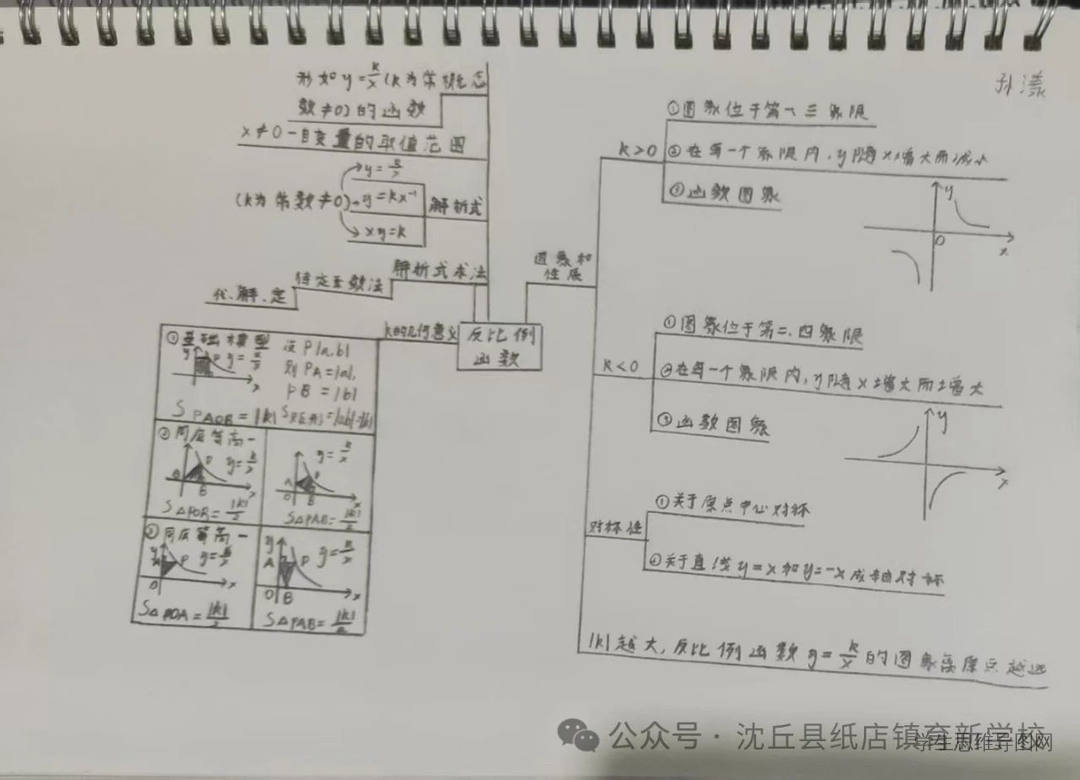 孙漾
形如y=k/x(k为常 概念
数≠0)的函数
x≠0-自变量的取值范围
y=k/x
(k为常数≠0) y=kx⁻¹ 解析式
xy=k
解析式求法
待定系数法
代、解、定
k的几何意义
反比例
函数
①基础模型 设P(a,b)
y P y=k/x 则PA=|a|,
x PB=|b|
S PAOB=|k| S矩形=|ab|=|k|
②同底等高一
y=k/x
A P
B x
S△POB=|k|/2
y=k/x
A P
O B x
S△PAB=|k|/2
③同底等高一
y A P y=k/x
O x
S△POA=|k|/2
y y=k/x
A P
O B x
S△PAB=|k|/2
图象和
性质
k>0
①图象位于第一、三象限
②在每一个象限内,y随x增大而减小
③函数图象
y
O
x
k<0
①图象位于第二、四象限
②在每一个象限内,y随x增大而增大
③函数图象
y
x
对称性
①关于原点中心对称
②关于直线y=x和y=-x成轴对称
|k|越大,反比例函数y=k/x的图象离原点越远
公众号·沈丘县纸店镇育新学校
学生思维导图网